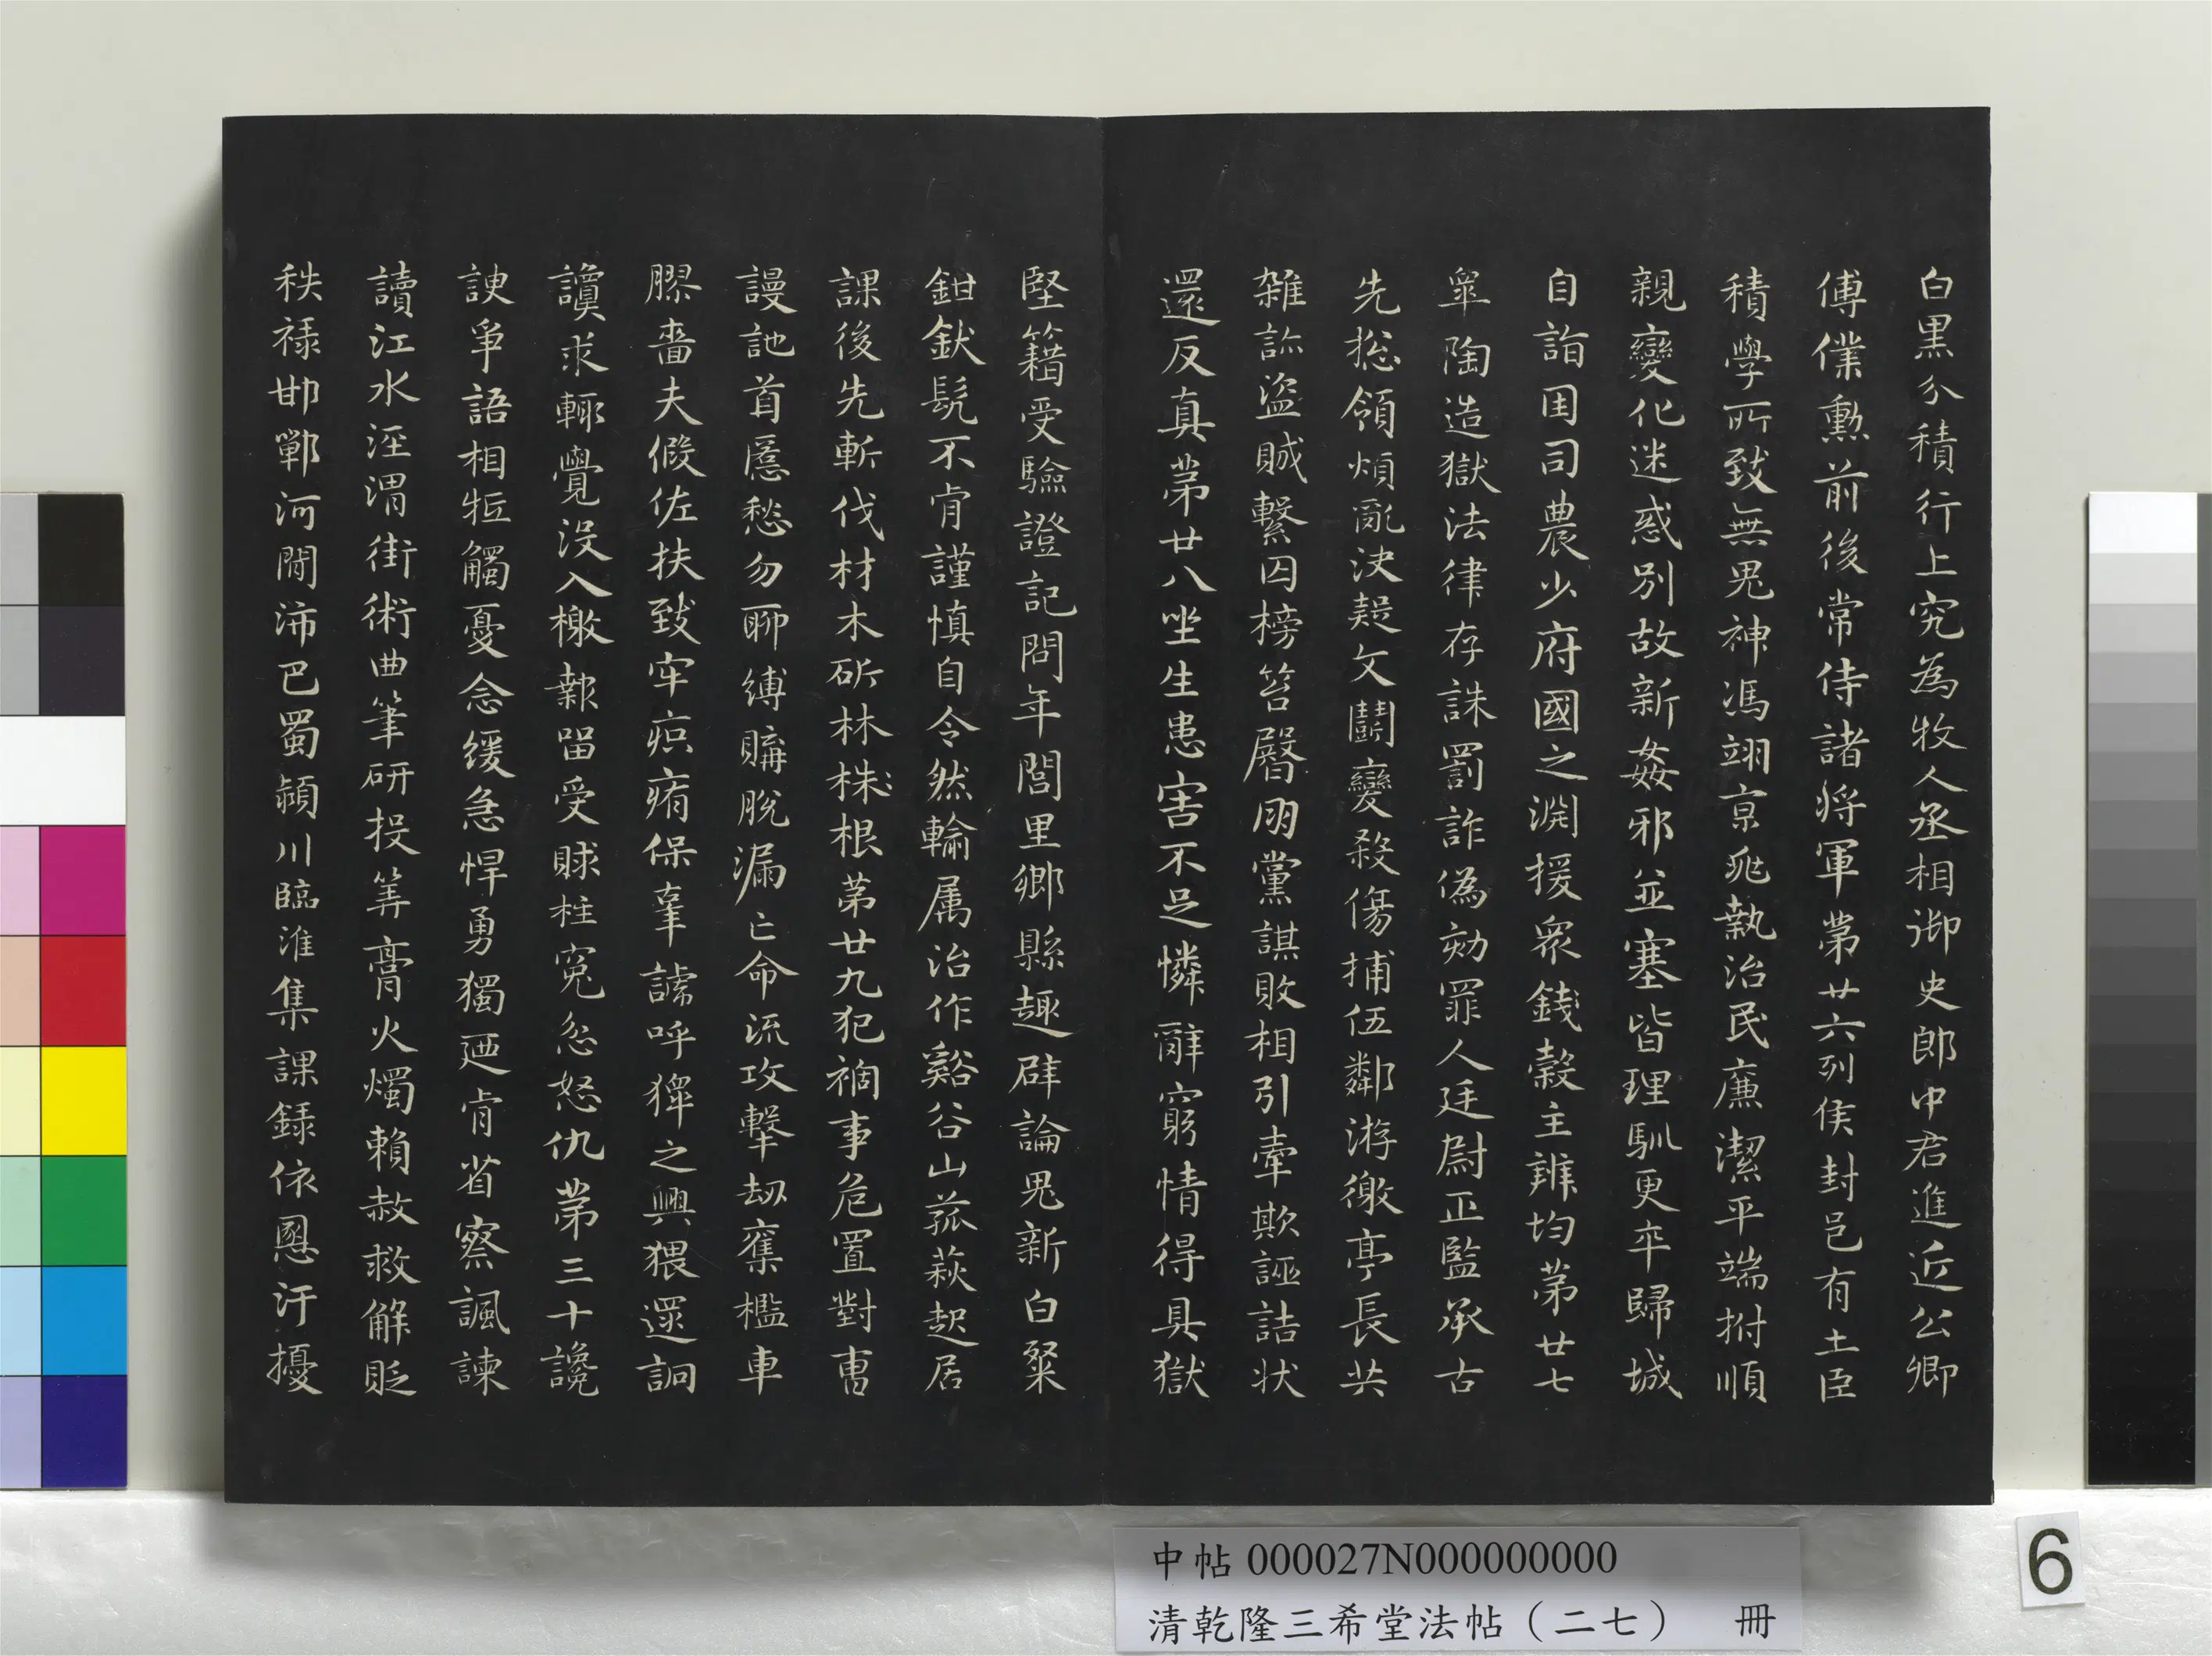 白黑分積行上究為牧人丞相御史郎中君進近公卿
傅僕勳前後常侍諸將軍第廿六列侯封邑有土臣
積學所致無鬼神馮翊京兆執治民廉潔平端拊順
親變化迷惑別故新姦邪並塞皆理馴更卒歸城
自詣因司農少府國之淵援眾錢穀主辨均第廿七
皋陶造獄法律存誅罰詐偽劾罪人廷尉正監承古
先捴領煩亂決疑文鬭變殺傷捕伍鄰游徼亭長共
雜訟盜賊繫囚榜笞臀朋黨謀敗相引牽欺誣詰状
還反真第廿八坐生患害不足憐辭窮情得具獄
堅籍受驗證記問年閭里鄉縣趣辟論鬼新白粲
鉗釱髡不肯謹慎自令然輸属治作谿谷山菰萩起居
課後先斬伐材木斫林株根第廿九犯禍事危置對曹
謾訑首匿愁勿聊縛購脫漏亡命流攻擊劫奪檻車
膠嗇夫假佐扶致牢疻痏保辜謕呼猈之興猥逯詗
讂求輒覺没入檄報留受賕枉冤忿怒仇第三十讒
諛爭語相牴觸憂念缓急悍勇獨迺肯省察諷諫
讀江水涇渭街術曲筆研投筭膏火燭賴赦救解貶
秩禄邯鄲河間沛巴蜀潁川臨淮集課録依恩汙擾
中帖 000027N000000000
清乾隆三希堂法帖（二七） 冊
6